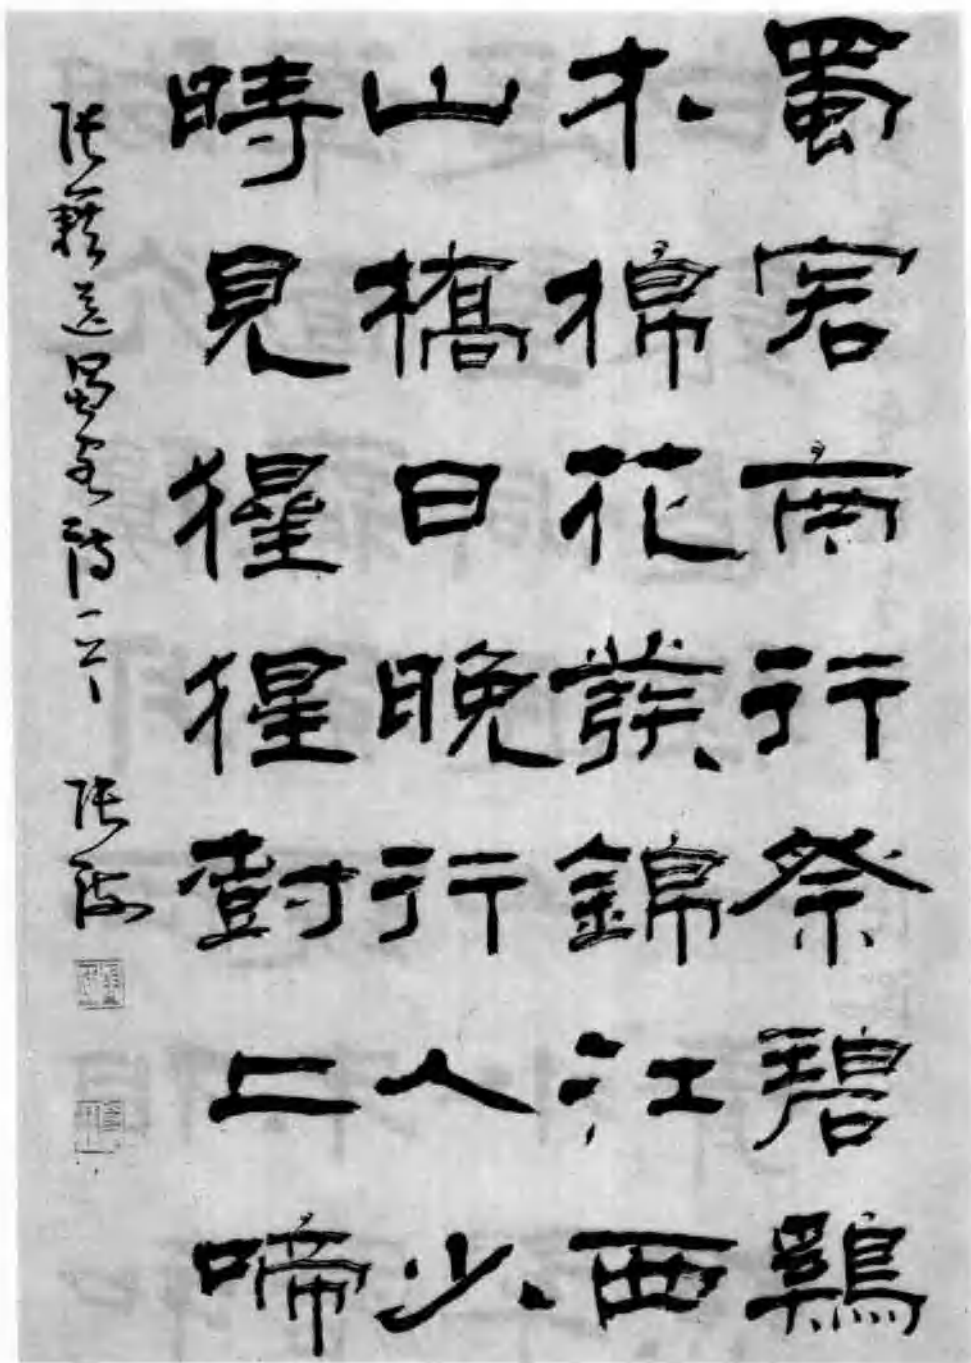 蜀客南行祭碧鷄
木棉花發錦江西
山橋日晚行人少
時見猩猩樹上啼
張籍送蜀客詩一首 張海